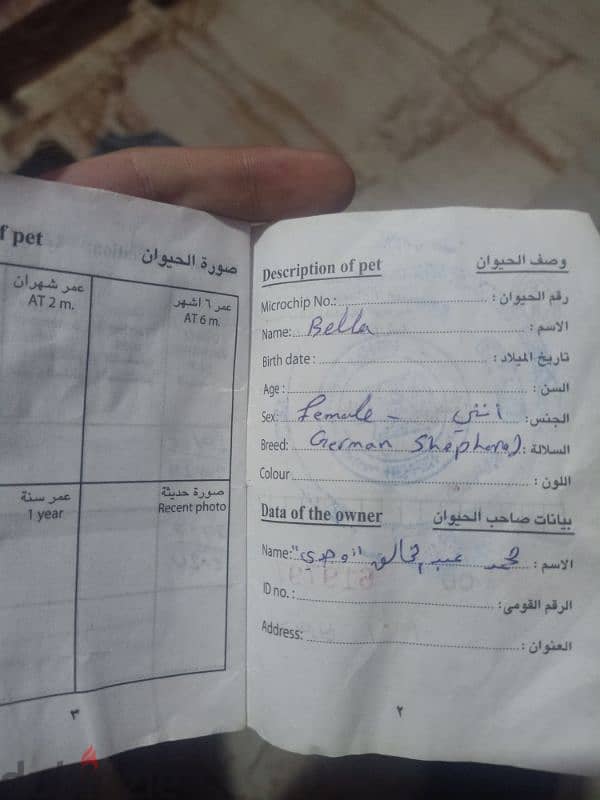 f pet صورة الحيوان
عمر شهران
AT 2 m.
عمر ٦ اشهر
AT 6 m.
عمر سنة
1 year
صورة حديثة
Recent photo
٣
Description of pet وصف الحيوان
Microchip No.: رقم الحيوان :
Name: Bella الاسم :
Birth date : تاريخ الميلاد :
Age : السن :
Sex: female - أنثي الجنس:
Breed: German Shepherd السلالة :
Colour اللون :
Data of the owner بيانات صاحب الحيوان
Name: محمد عبد الخالق الاسم :
ID no. : الرقم القومى:
Address: العنوان :
٢